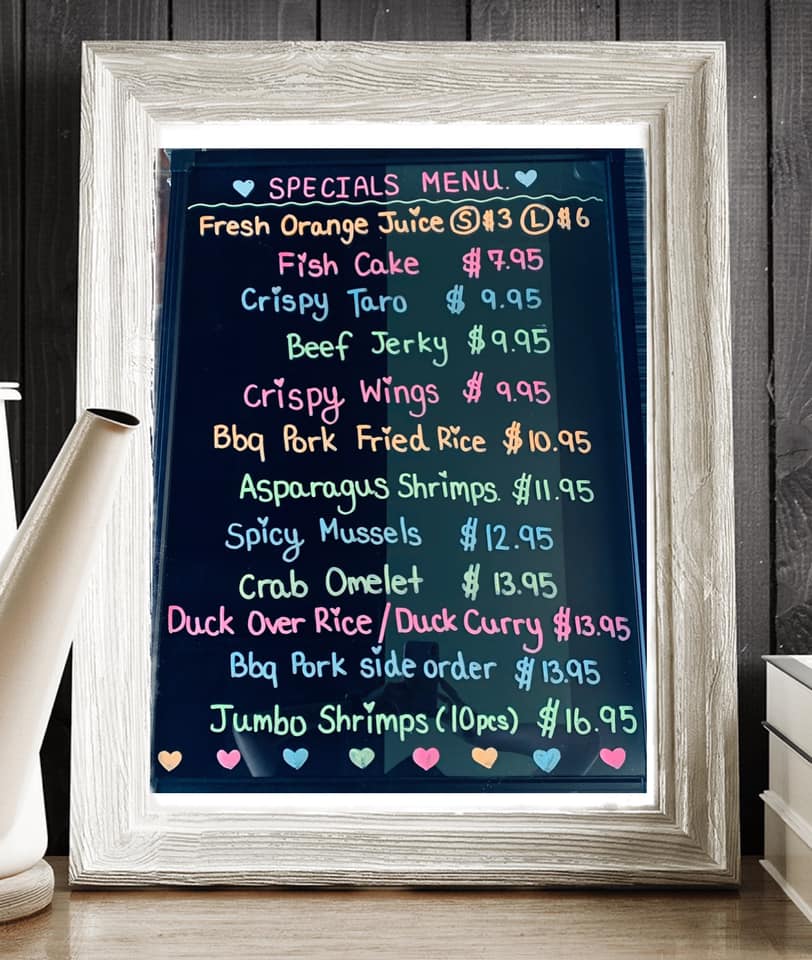 SPECIALS MENU.
Fresh Orange Juice Ⓢ $3 Ⓛ $6
Fish Cake $7.95
Crispy Taro $ 9.95
Beef Jerky $9.95
Crispy Wings $ 9.95
Bbq Pork Fried Rice $10.95
Asparagus Shrimps. $11.95
Spicy Mussels $12.95
Crab Omelet $ 13.95
Duck Over Rice/Duck Curry $13.95
Bbq Pork side order $13.95
Jumbo Shrimps (10pcs) $16.95